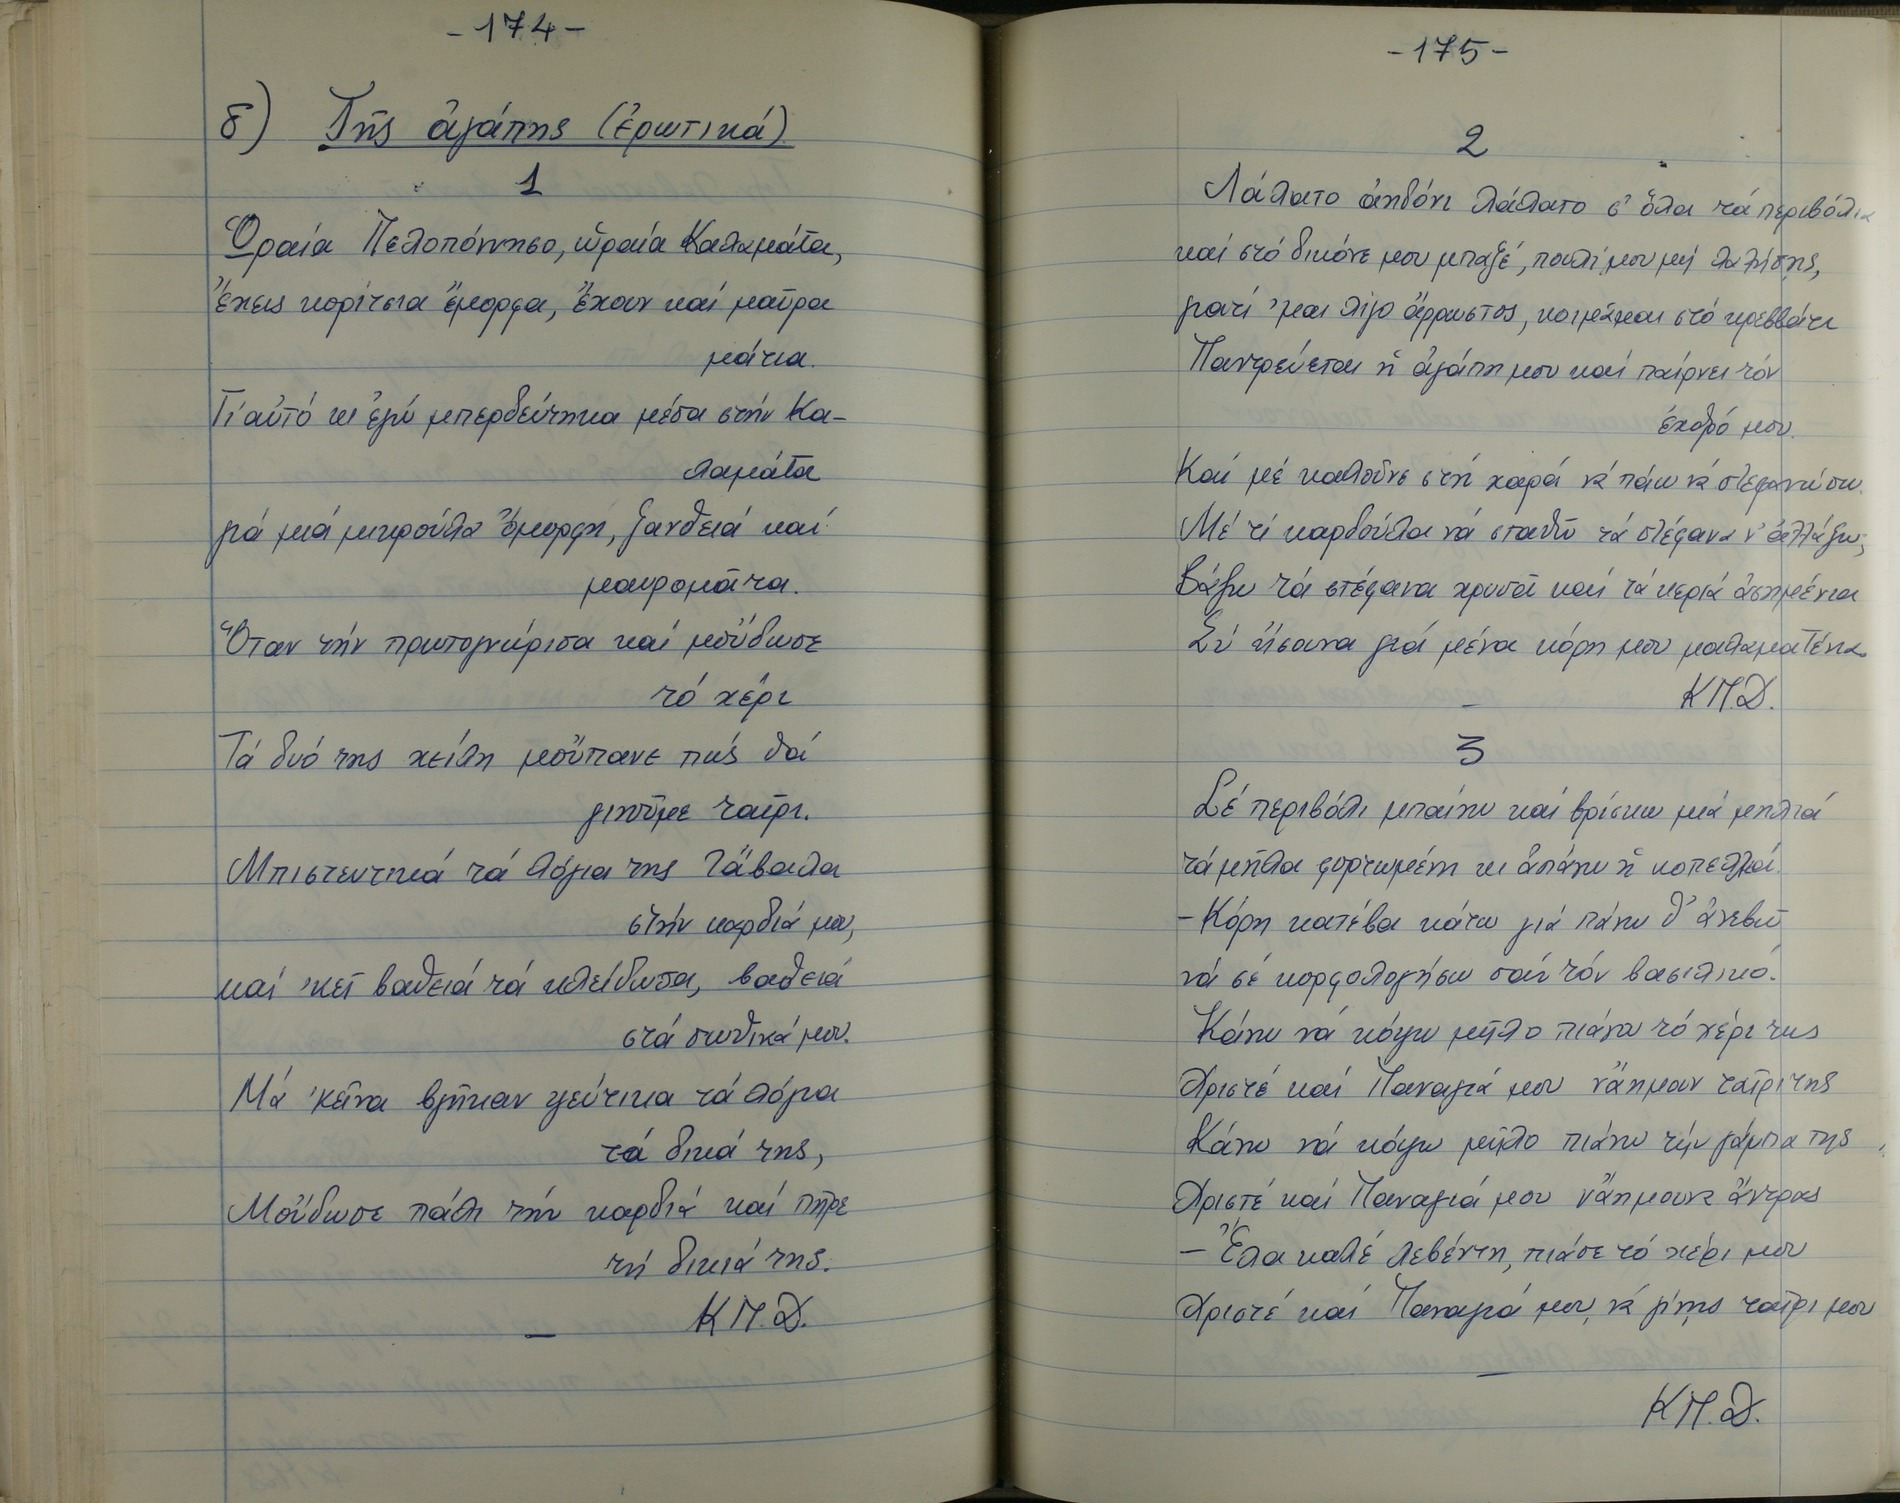 -174-
δ) Τῆς ἀγάπης (ἐρωτικά)
1
Ὡραία Πελοπόννησο, ὡραία Καλαμάτα,
Ἔχεις κορίτσια ἔμορφα, ἔχουν καί μαῦρα
μάτια.
Γι αὐτό κι ἐγώ μπερδεύτηκα μέσα στήν Κα-
λαμάτα
γιά μιά μικρούλα ὄμορφη, ξανθειά καί
μαυρομάτα.
Ὅταν τήν πρωτογνώρισα καί μοὔδωσε
τό χέρι
Τά δυό της χείλη μοὔπανε πώς θά
γινοῦμε ταῖρι.
Μπιστευτικά τά λόγια της τἄβαλα
στήν καρδιά μου,
καί 'κεῖ βαθειά τά κλείδωσα, βαθειά
στά σωθικά μου.
Μά 'κεῖνα βγῆκαν ψεύτικα τά λόγια
τά δικά της,
Μοὔδωσε πάλι τήν καρδιά καί πῆρε
τή δικιά της.
Κ Π.Δ.
-175-
2
Λάλατο ἀηδόνι λάλατο σ' ὅλα τά περιβόλια
καί στό δικόνε μου μπαξέ, πουλί μου μή λαλήσης,
γιατί 'μαι λίγο ἄρρωστος, κοιμᾶμαι στό κρεββάτι
Παντρεύεται ἡ ἀγάπη μου καί παίρνει τόν
ἐχθρό μου.
Καί μέ καλοῦνε στή χαρά νά πάω νά στεφανώσω.
Μέ τί καρδούλα νά σταθῶ τά στέφανα ν' ἀλλάξω;
Βάζω τά στέφανα χρυσᾶ καί τά κεριά ἀσημένια
Σύ ἤσανα γιά μένα κόρη μου μαλαματένια.
Κ Π.Δ.
3
Σέ περιβόλι μπαίνω καί βρίσκω μιά μηλιά
τά μῆλα φορτωμένη κι ἀπάνω ἡ κοπελλιά.
- Κόρη κατέβα κάτω γιά πάνω θ' ἀνεβῶ
νά σέ κορφολογήσω σάν τόν βασιλικό.
Κάνω νά κόψω μῆλο πιάνω τό χέρι της
Χριστέ καί Παναγιά μου νἄημαν ταῖρι της
Κάνω νά κόψω μῆλο πιάνω τήν γάμπα της
Χριστέ καί Παναγιά μου νἄημουνα ἄντρας
- Ἔλα καλέ λεβέντη, πιάσε τό χέρι μου
Χριστέ καί Παναγιά μου, νά γίνης ταῖρι μου
Κ Π.Δ.